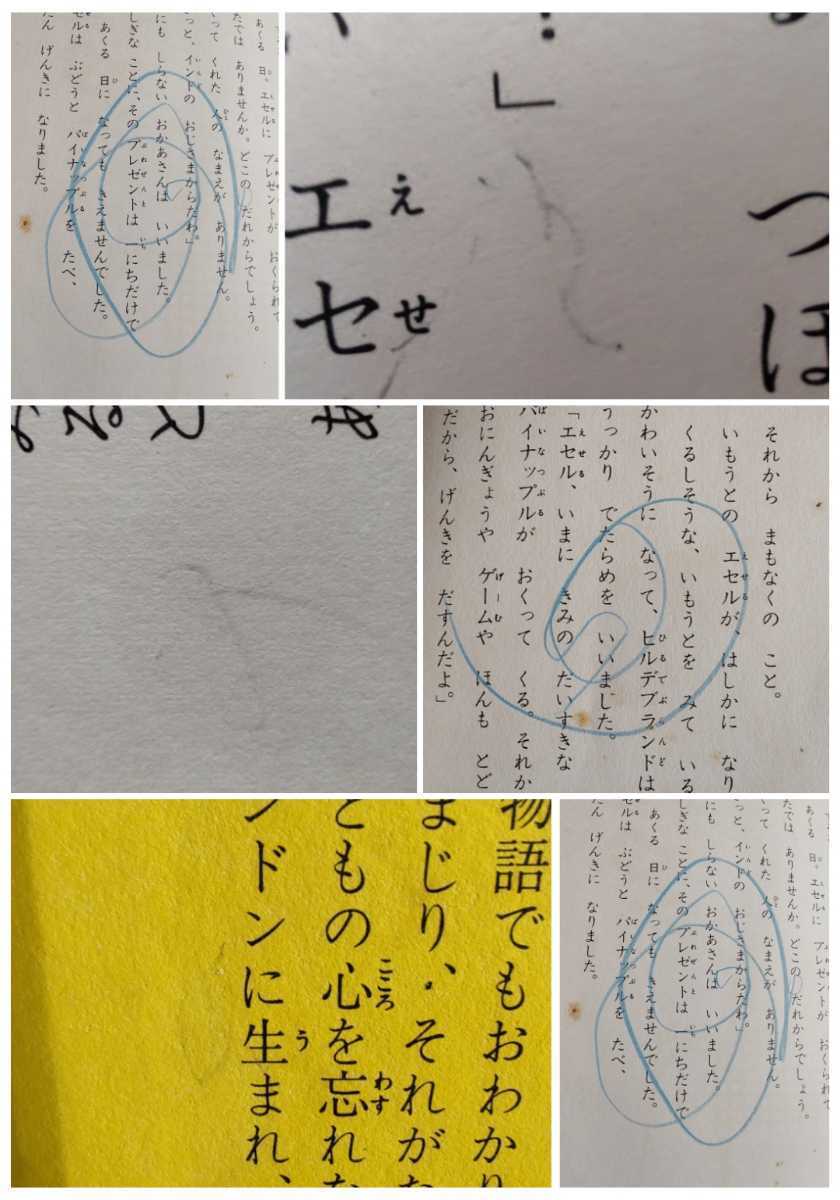 あくる 日、エセルに プレゼントが おくられて
たでは ありませんか。どこの だれからでしょう。
くって くれた 人の なまえが ありません。
っと、インドの おじさまからだわ」
にも しらない おかあさんは いいました。
しぎな ことに、その プレゼントは 一にちだけで
あくる 日に なっても きえませんでした。
セルは ぶどうと パイナップルを たべ、
たん げんきに なりました。
つほ
」
えせ
エセ
それから まもなくの こと。
いもうとの エセルが、はしかに なり
くるしそうな、いもうとを みて いる
かわいそうに なって、ヒルデブランドは
うっかり でたらめを いいました。
「エセル、いまに きみの だいすきな
パイナップルが おくって くる。それか
おにんぎょうや ゲームや ほんも とど
だから、げんきを だすんだよ。」
物語でもおわかり
まじり、それがな
どもの心を忘れな
ンドンに生まれ、
あくる 日、エセルに プレゼントが おくられて
たでは ありませんか。どこの だれからでしょう。
くって くれた 人の なまえが ありません。
っと、インドの おじさまからだわ」
にも しらない おかあさんは いいました。
しぎな ことに、その プレゼントは 一にちだけで
あくる 日に なっても きえませんでした。
セルは ぶどうと パイナップルを たべ、
たん げんきに なりました。